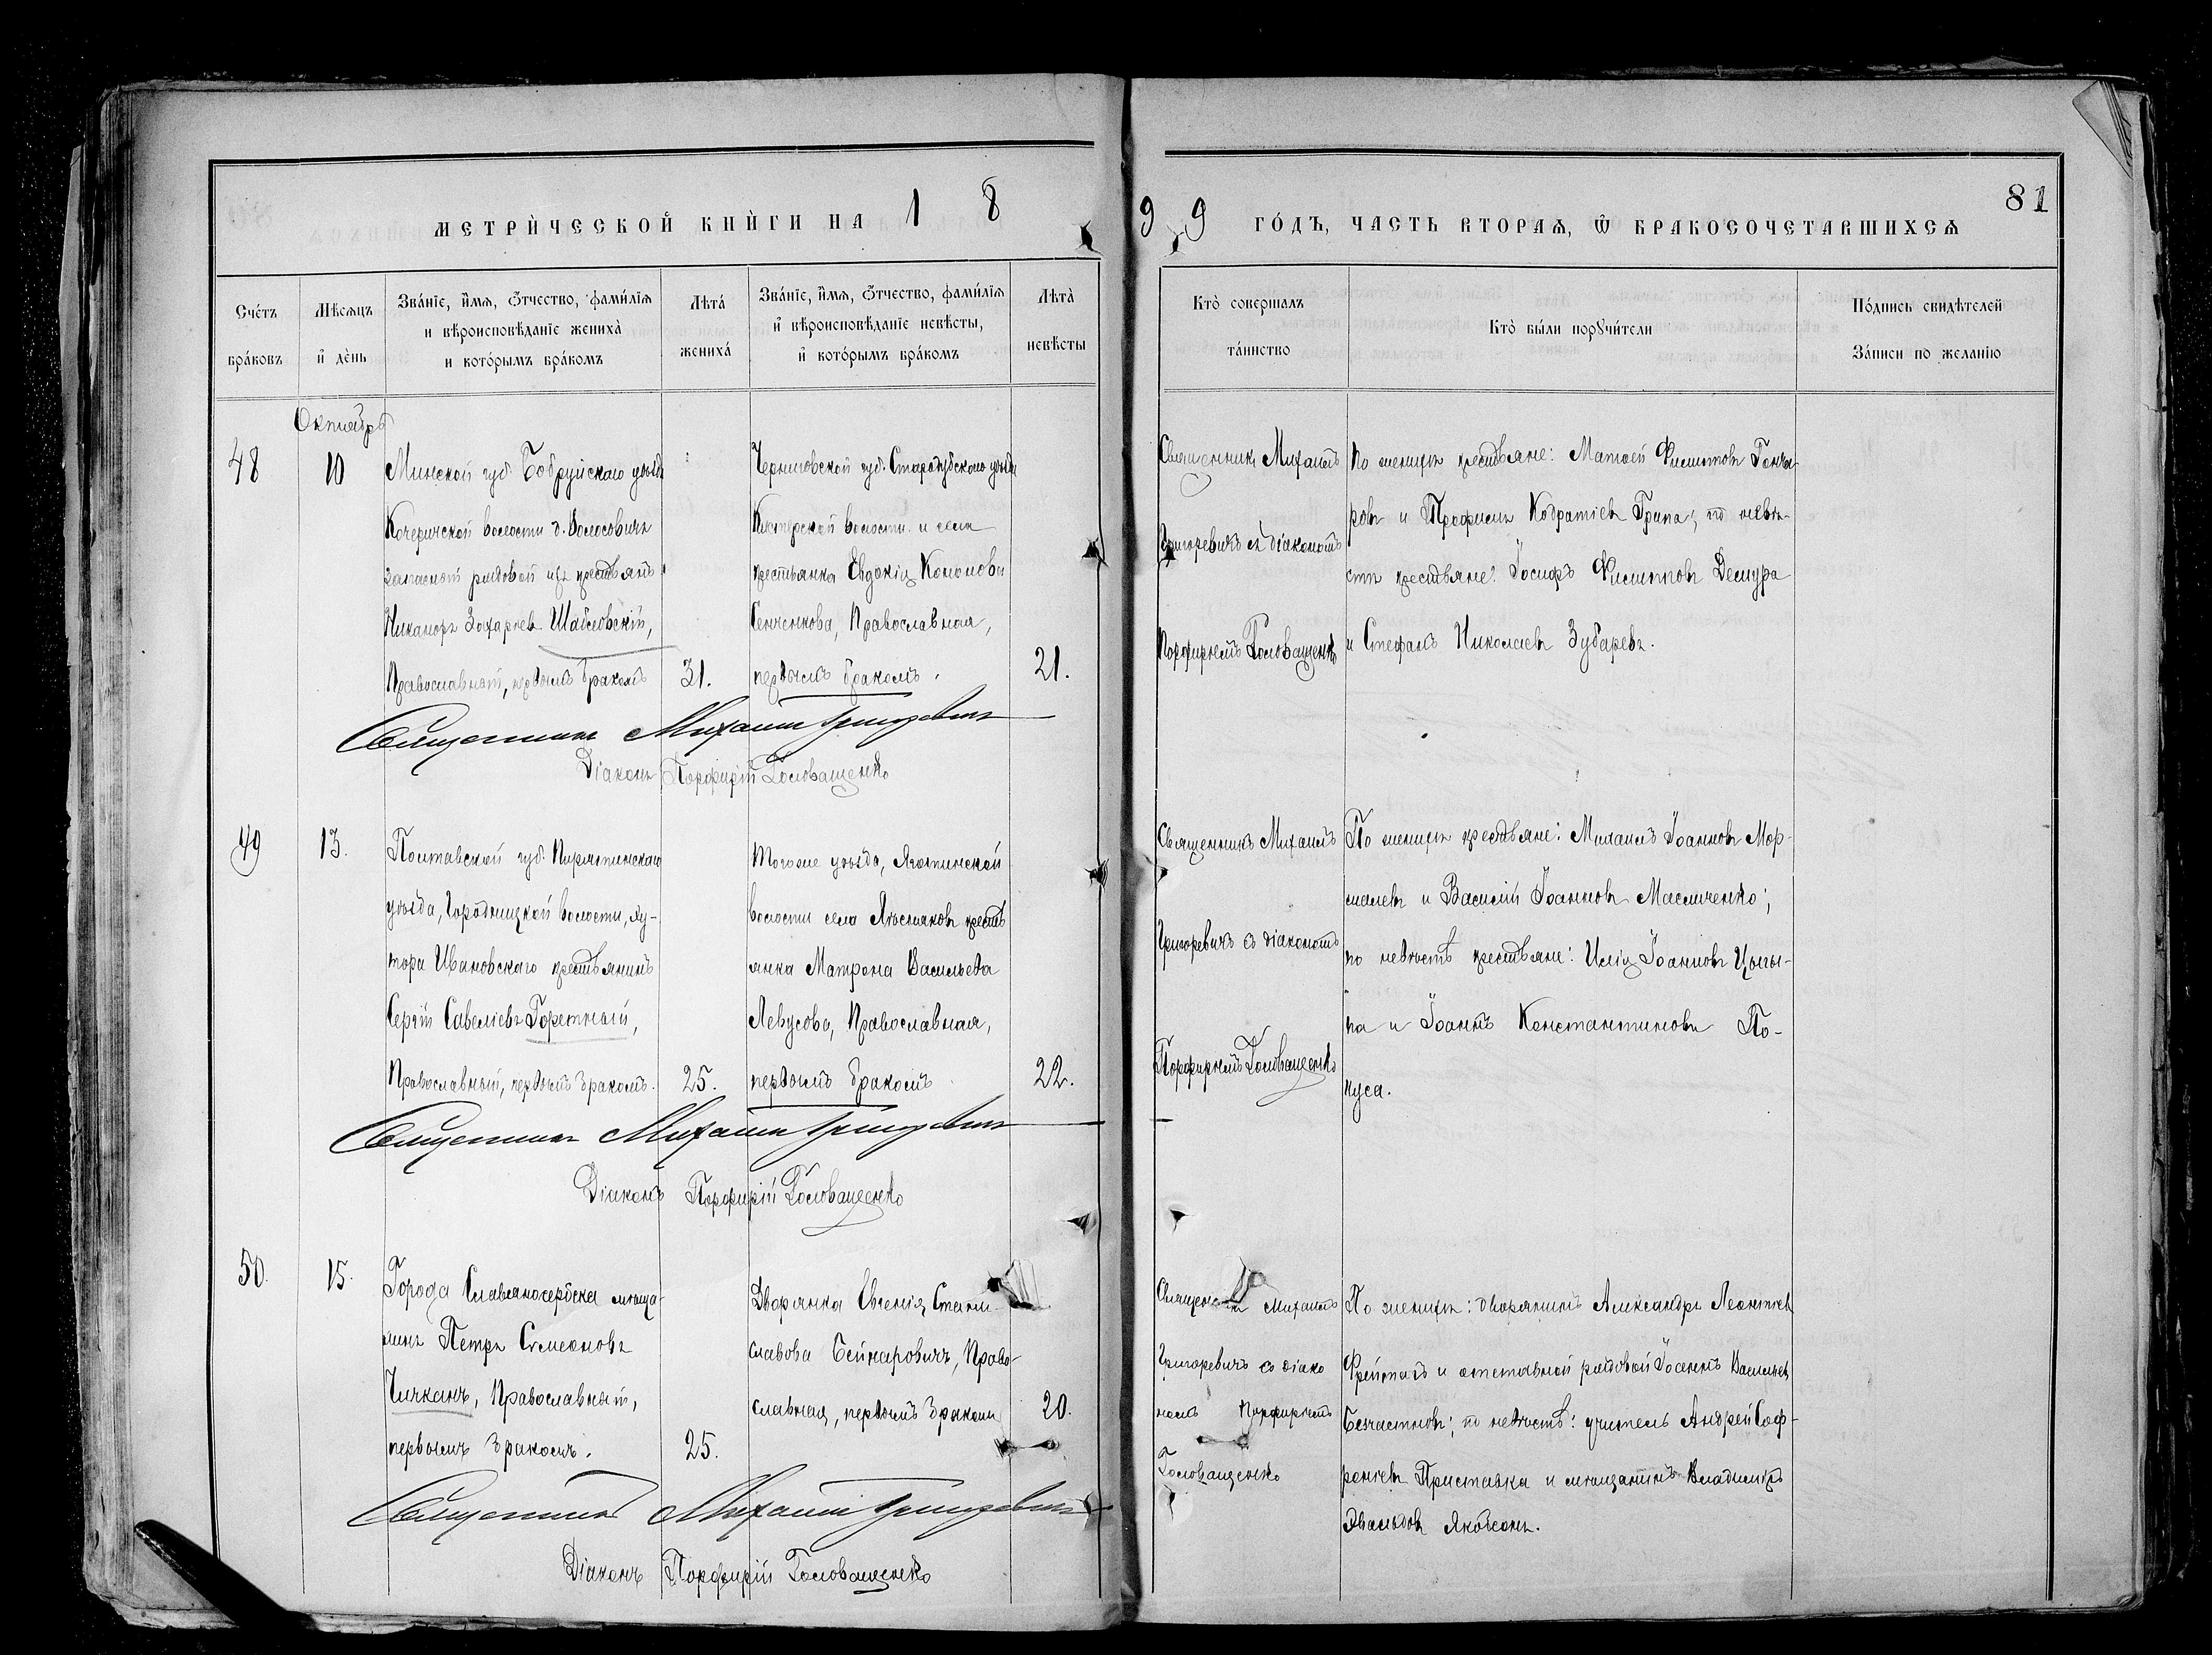 МЕТРИ́ЧЕСКОЙ КНИ́ГИ НА 18
99 ГО́ДЪ, ЧАСТЬ ВТОРАѦ, Ѿ БРАКОСОЧЕТАВШИХСѦ
81
Сче́тъ бра́ковъ
Мѣ́сѧцъ и҆ де́нь
Зва́нїе, и҆́мѧ, ѻ҆́тчество, фами́лїѧ
и вѣроисповѣ́данїе жениха̀
и кото́рымъ бра́комъ
Лѣта̀ жениха́
Зва́нїе, и҆́мѧ, ѻ҆́тчество, фами́лїѧ
и҆ вѣроисповѣ́данїе невѣ́сты,
и҆ кото́рымъ бра́комъ
Лѣта̀ невѣ́сты
Кто̀ соверша́лъ та́инство
Кто̀ бы́ли порꙋчи́тели
По́дпись свидѣ́телей
За́писи по жела́нїю
Октябрь
48
10
Минской губ. Бобруйскаго уѣзда
Качеричской волости д. Волосовичъ
запасный рядовой изъ крестьянъ
Никаноръ Захаріевъ Шабловскій,
Православный, первымъ бракомъ
31.
Черниговской губ. Стародубскаго уѣзда
волости и села
крестьянка Евдокія Кононова
Сенченкова, Православная,
первымъ бракомъ.
21.
Священникъ Михаилъ
Григоревичъ съ діакономъ
Порфиріемъ Головащенко
По женихѣ крестьяне: Матѳей Филиповъ Гонча-
ровъ и Трофимъ Кодратіевъ Грипа; по невѣ-
стѣ крестьяне: Іосифъ Филипповъ Демура
и Стефанъ Николаевъ Зубаревъ.
Священникъ Михаилъ Григоревичъ
Діаконъ Порфирій Головащенко
49
13.
Полтавской губ. Пирятинскаго
уѣзда, Городницкой волости, ху-
тора Ивановскаго крестьянинъ
Сергій Савеліевъ Горетный,
Православный, первымъ бракомъ.
25.
Тогоже уѣзда, Яготинской
волости села крестъ
янка Матрона Васильева
Левусова, Православная,
первымъ бракомъ
22.
Священникъ Михаилъ
Григоревичъ съ діакономъ
Порфиріемъ Головащенко
По женихѣ крестьяне: Михаилъ Іоанновъ Мор-
малевъ и Василій Іоанновъ Масличенко;
по невѣстѣ крестьяне: Илія Іоанновъ Цыгы-
па и Іоаннъ Константиновъ По-
куса.
Священникъ Михаилъ Григоревичъ
Діаконъ Порфирій Головащенко
50.
15.
Города Славяносербска мѣща-
нинъ Петръ Симеоновъ
Чичканъ, Православный,
первымъ бракомъ.
25.
Дворянка Евгенія Стани-
славова Бейнаровичъ, Право-
славная, первымъ бракомъ
20.
Священникъ Михаилъ
Григоревичъ съ діако
номъ Порфиріемъ
Головащенко
По женихѣ: дворянинъ Александръ Леонтіевъ
Фрейтагъ и отставной рядовой Іоаннъ Васильевъ
Безчастновъ; по невѣстѣ: учитель Андрей Соф-
роніевъ Приставка и мѣщанинъ Владиміръ
Эвальдовъ Якобсонъ.
Священникъ Михаилъ Григоревичъ
Діаконъ Порфирій Головащенко